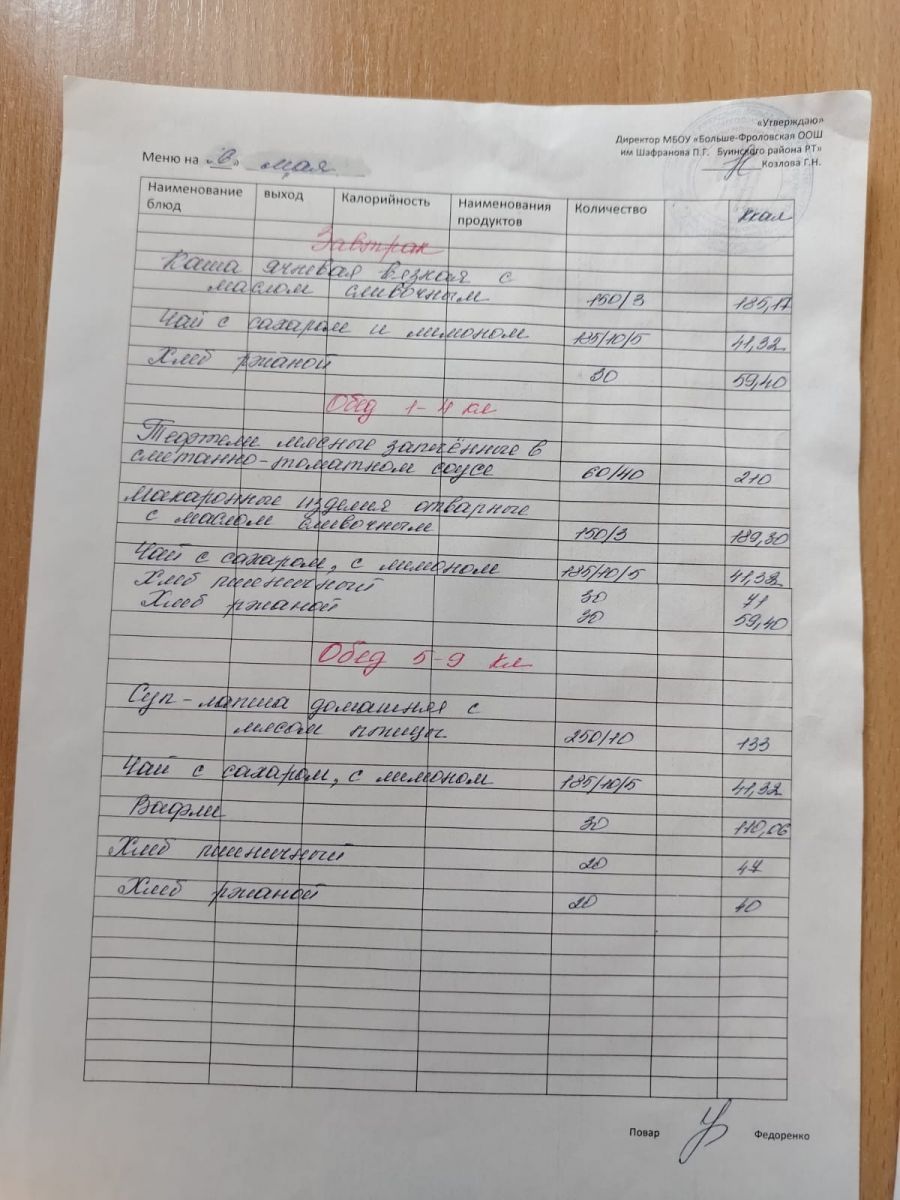 «Утверждаю»
Директор МБОУ «Больше-Фроловская ООШ
им Шафранова П.Г. Буинского района РТ»
Козлова Г.Н.
Меню на мая
Наименование блюд выход Калорийность Наименования продуктов Количество Ккал
Завтрак
Каша ячневая вязкая с
маслом сливочным 150/3 185,17
Чай с сахаром и лимоном 185/10/5 41,32
Хлеб ржаной 30 59,40
Обед 1-4 кл
Тефтели мясные запечённые в
сметанно-томатном соусе 60/40 210
Макаронные изделия отварные
с маслом сливочным 150/3 189,30
Чай с сахаром, с лимоном 185/10/5 41,32
Хлеб пшеничный 30 71
Хлеб ржаной 30 59,40
Обед 5-9 кл
Суп-лапша домашняя с
мясом птицы 250/10 133
Чай с сахаром, с лимоном 185/10/5 41,32
Вафли 30 110,06
Хлеб пшеничный 20 47
Хлеб ржаной 20 40
Повар Федоренко